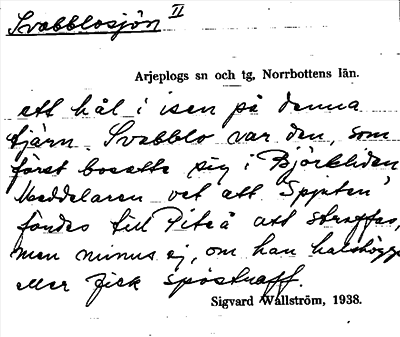 Svabblosjön II
Arjeplogs sn och tg, Norrbottens län.
ett hål i isen på denna
tjärn. Svabblo var den, som
först bosatte sig i Björkliden
Meddelaren vet att "Spjuten"
fördes till Piteå att straffas,
men minns ej, om han halshöggs
eller fick spöstraff.
Sigvard Wallström, 1938.